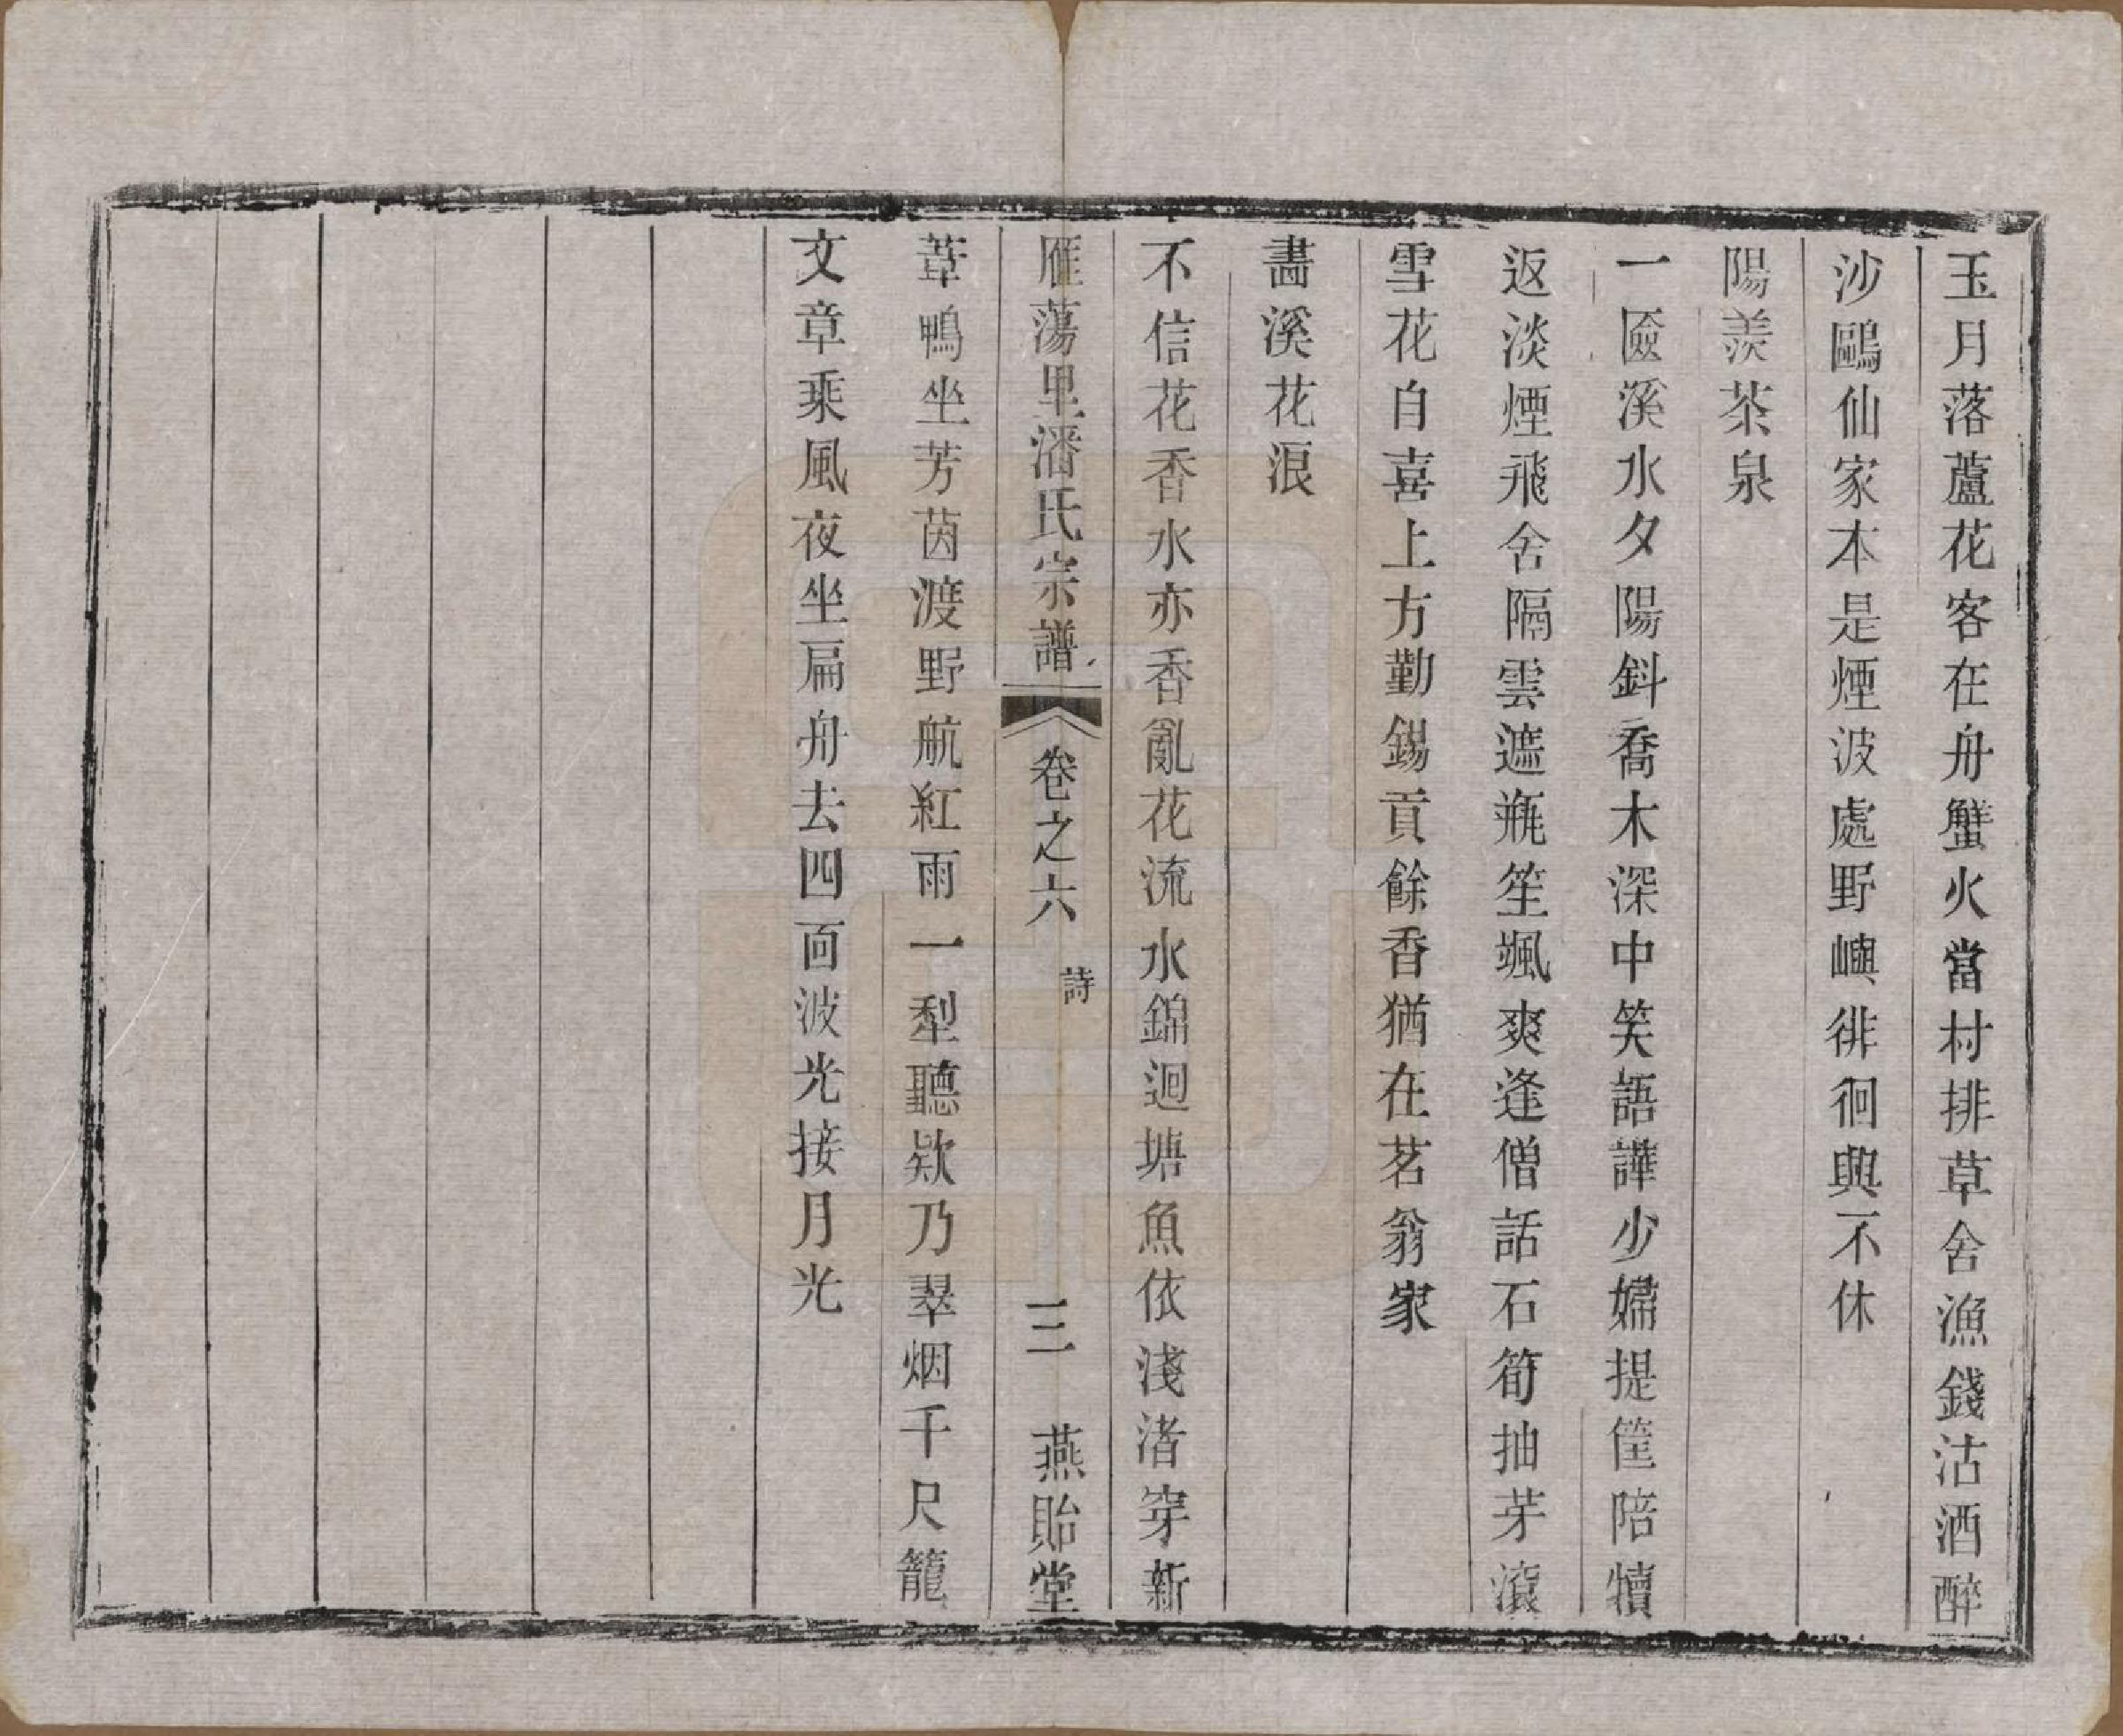 玉月落蘆花客在舟蟹火當村排草舍漁錢沽酒醉
沙鷗仙家本是煙波處野嶼徘徊興不休
陽羨茶泉
一匳溪水夕陽斜喬木深中笑語譁少婦提筐陪犢
返淡煙飛舍隔雲遮瓶笙颯爽逢僧話石筍抽芽滾
雪花自喜上方勤錫貢餘香猶在茗翁家
畵溪花浪
不信花香水亦香亂花流水錦迴塘魚依淺渚穿新
雁蕩里潘氏宗譜 卷之六 詩 三 燕貽堂
葦鴨坐芳茵渡野航紅雨一犁聽欵乃翠烟千尺籠
文章乘風夜坐扁舟去四面波光接月光